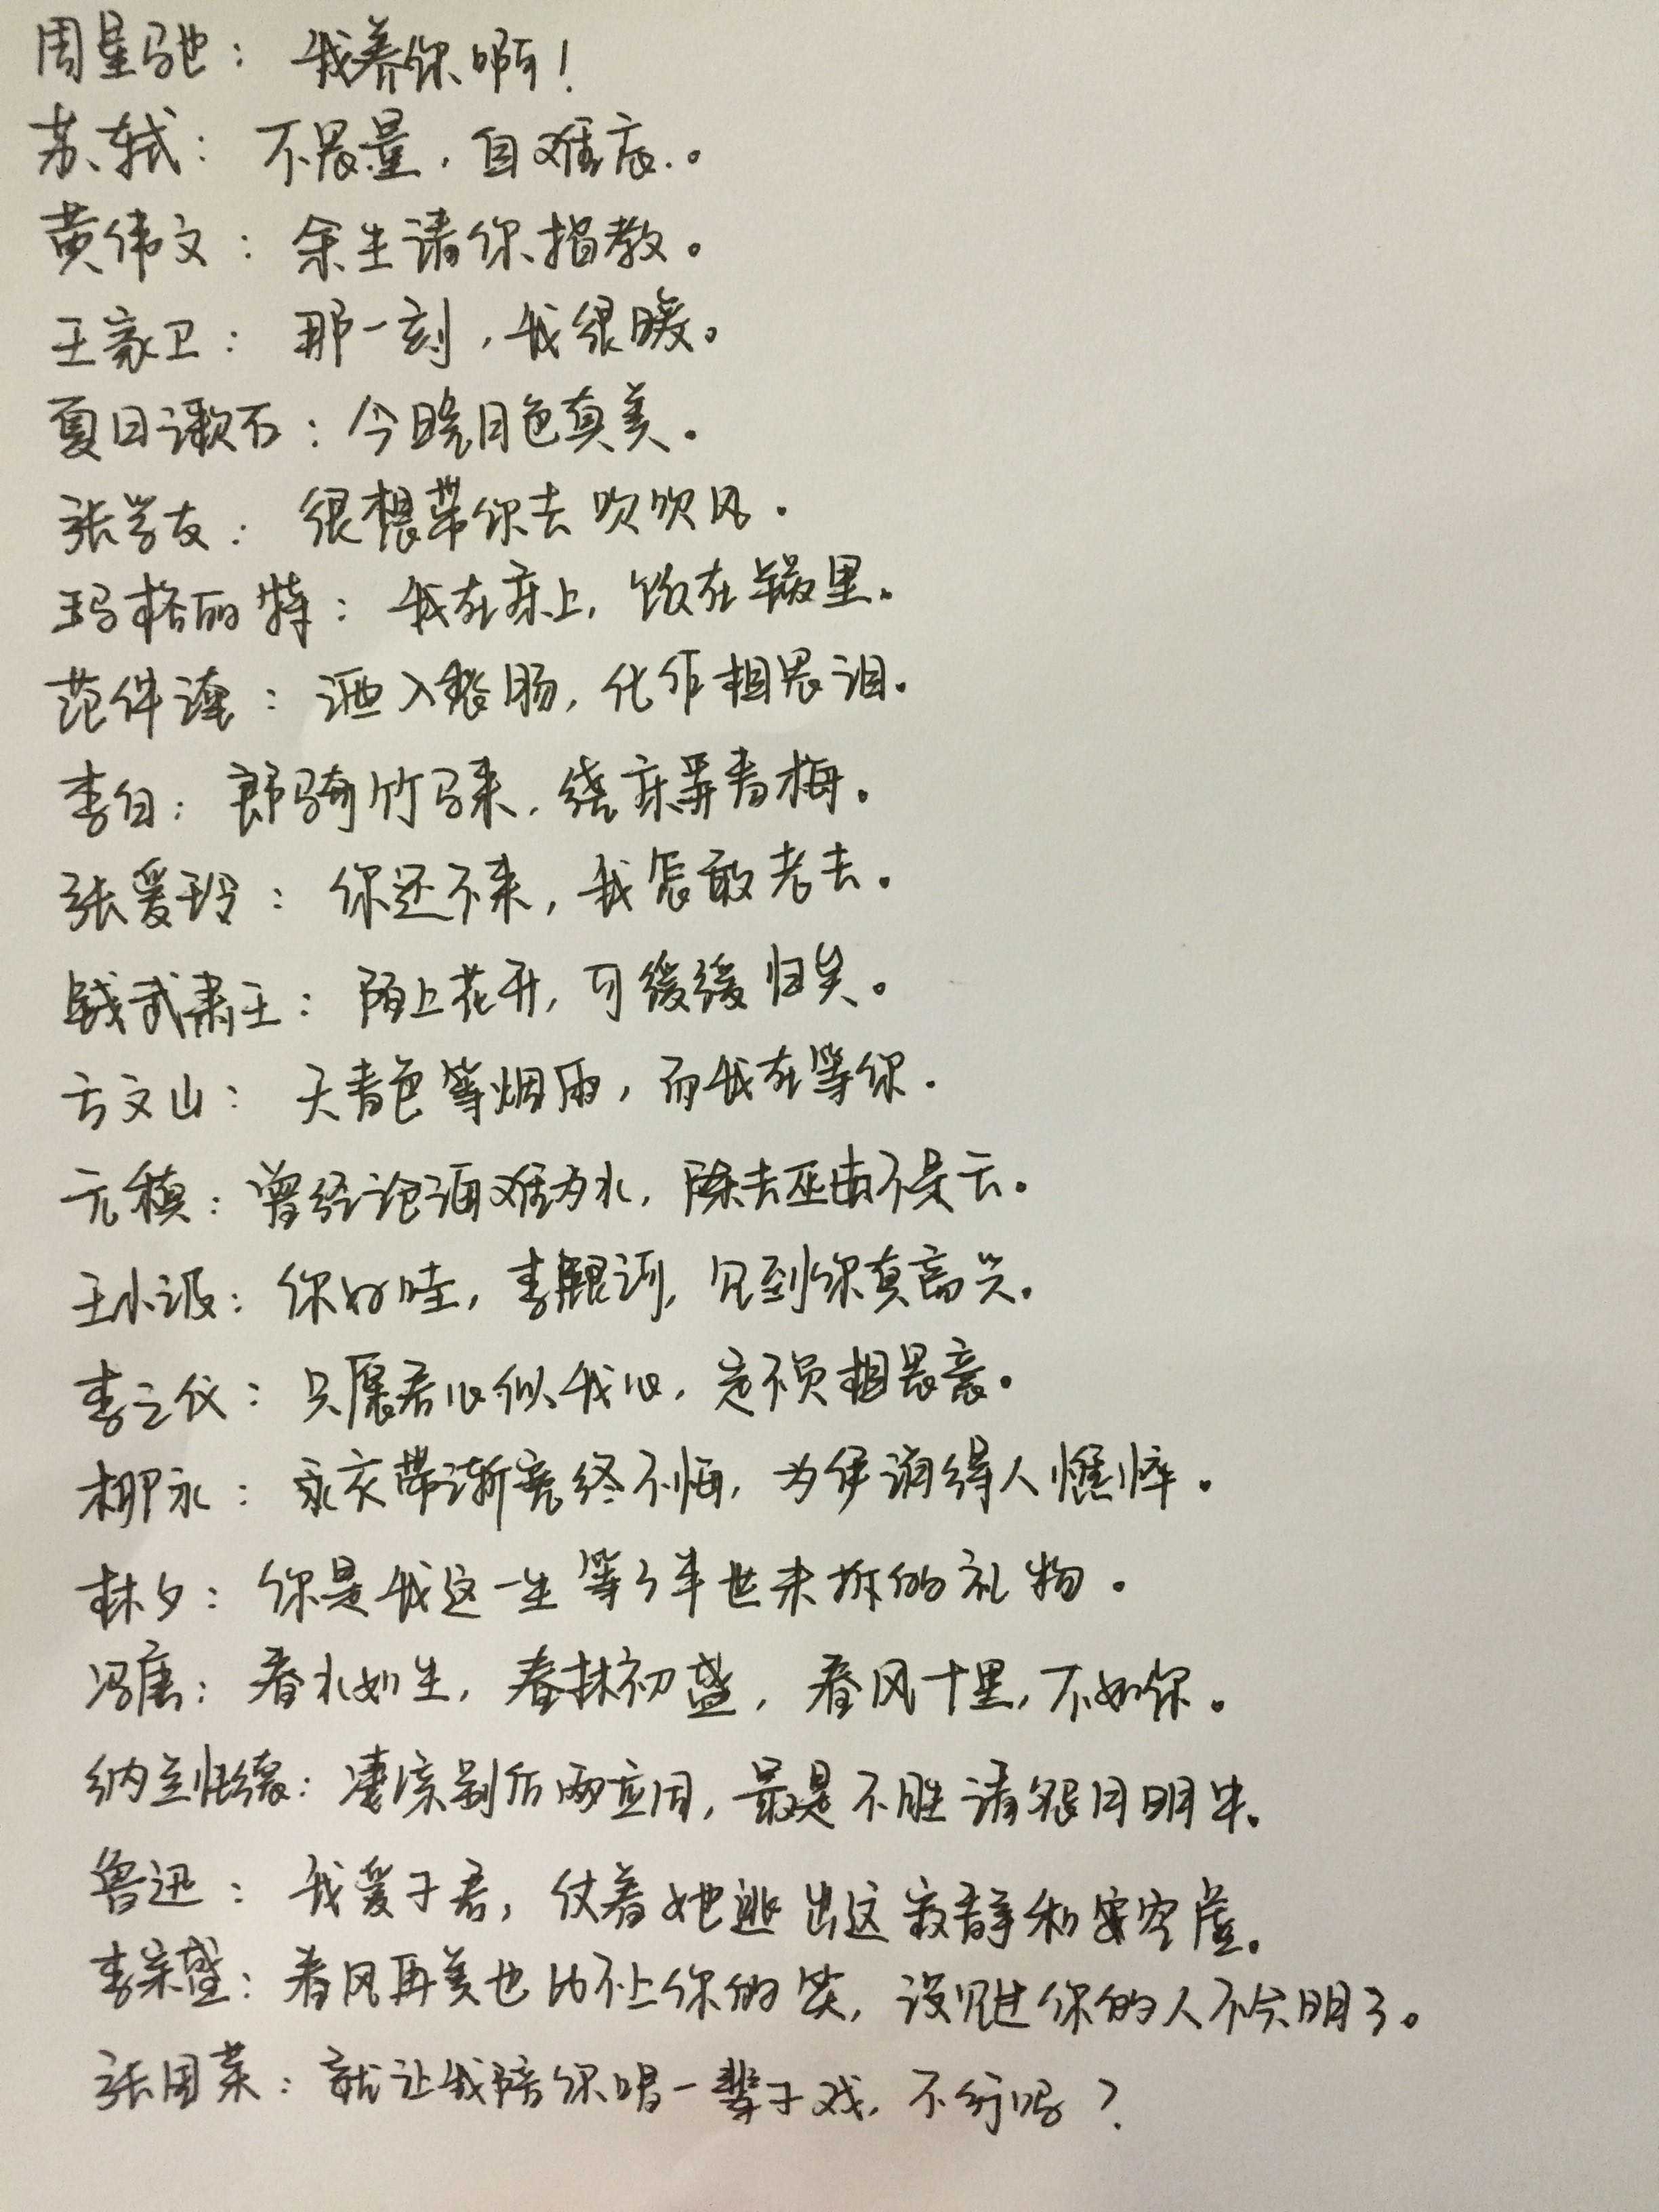 周星驰：我养你啊！
苏轼：不思量，自难忘。
黄伟文：余生请你指教。
王家卫：那一刻，我很暖。
夏目漱石：今晚月色真美。
张学友：很想带你去吹吹风。
玛格丽特：我在床上，饭在锅里。
范仲淹：酒入愁肠，化作相思泪。
李白：郎骑竹马来，绕床弄青梅。
张爱玲：你还不来，我怎敢老去。
钱武肃王：陌上花开，可缓缓归矣。
方文山：天青色等烟雨，而我在等你。
元稹：曾经沧海难为水，除去巫山不是云。
王小波：你好哇，李银河，见到你真高兴。
李之仪：只愿君心似我心，定不负相思意。
柳永：衣带渐宽终不悔，为伊消得人憔悴。
林夕：你是我这一生等了半世未拆的礼物。
冯唐：春水初生，春林初盛，春风十里，不如你。
纳兰性德：凄凉别后两应同，最是不胜清怨月明中。
鲁迅：我爱子君，仗着她逃出这寂静和空虚。
李宗盛：春风再美也比不上你的笑，没见过你的人不会明了。
张国荣：就让我陪你唱一辈子戏，不行吗？